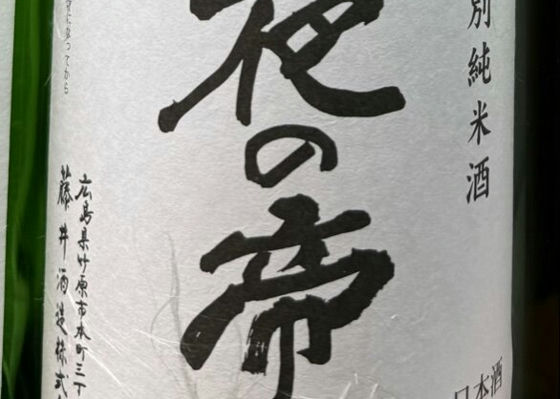 別純米酒
日本酒
夜の帝
広島県竹原市本町三丁
藤井酒造株式
になってから